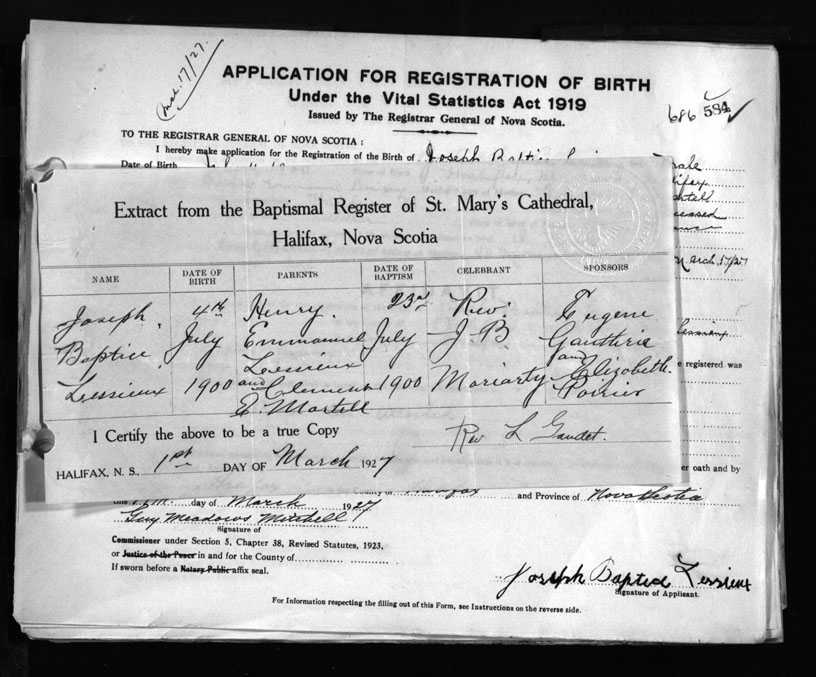 Mar. 17/27.
APPLICATION FOR REGISTRATION OF BIRTH
Under the Vital Statistics Act 1919
Issued by The Registrar General of Nova Scotia.
686 584
TO THE REGISTRAR GENERAL OF NOVA SCOTIA :
I hereby make application for the Registration of the Birth of Joseph
Date of Birth
March 17/27
Extract from the Baptismal Register of St. Mary's Cathedral,
Halifax, Nova Scotia
NAME DATE OF BIRTH PARENTS DATE OF BAPTISM CELEBRANT SPONSORS
Joseph 4th Henry 23rd Rev. Eugene
Baptice July Emmanuel July J. B. Gauthrie
Lessieux 1900 Lessieux 1900 Moriarty and Elizabeth
and Clement Poirier
E. Martell
I Certify the above to be a true Copy
Rev L Gaudet.
HALIFAX, N. S., 1st DAY OF March 1927
e registered was
er oath and by
County of Halifax and Province of Nova Scotia
day of March 1927
Guy Meadows Mitchell
Signature of
Commissioner under Section 5, Chapter 38, Revised Statutes, 1923,
or Justice of the Peace in and for the County of
If sworn before a Notary Public affix seal.
Joseph Bapted Lessieux
Signature of Applicant.
For Information respecting the filling out of this Form, see Instructions on the reverse side.